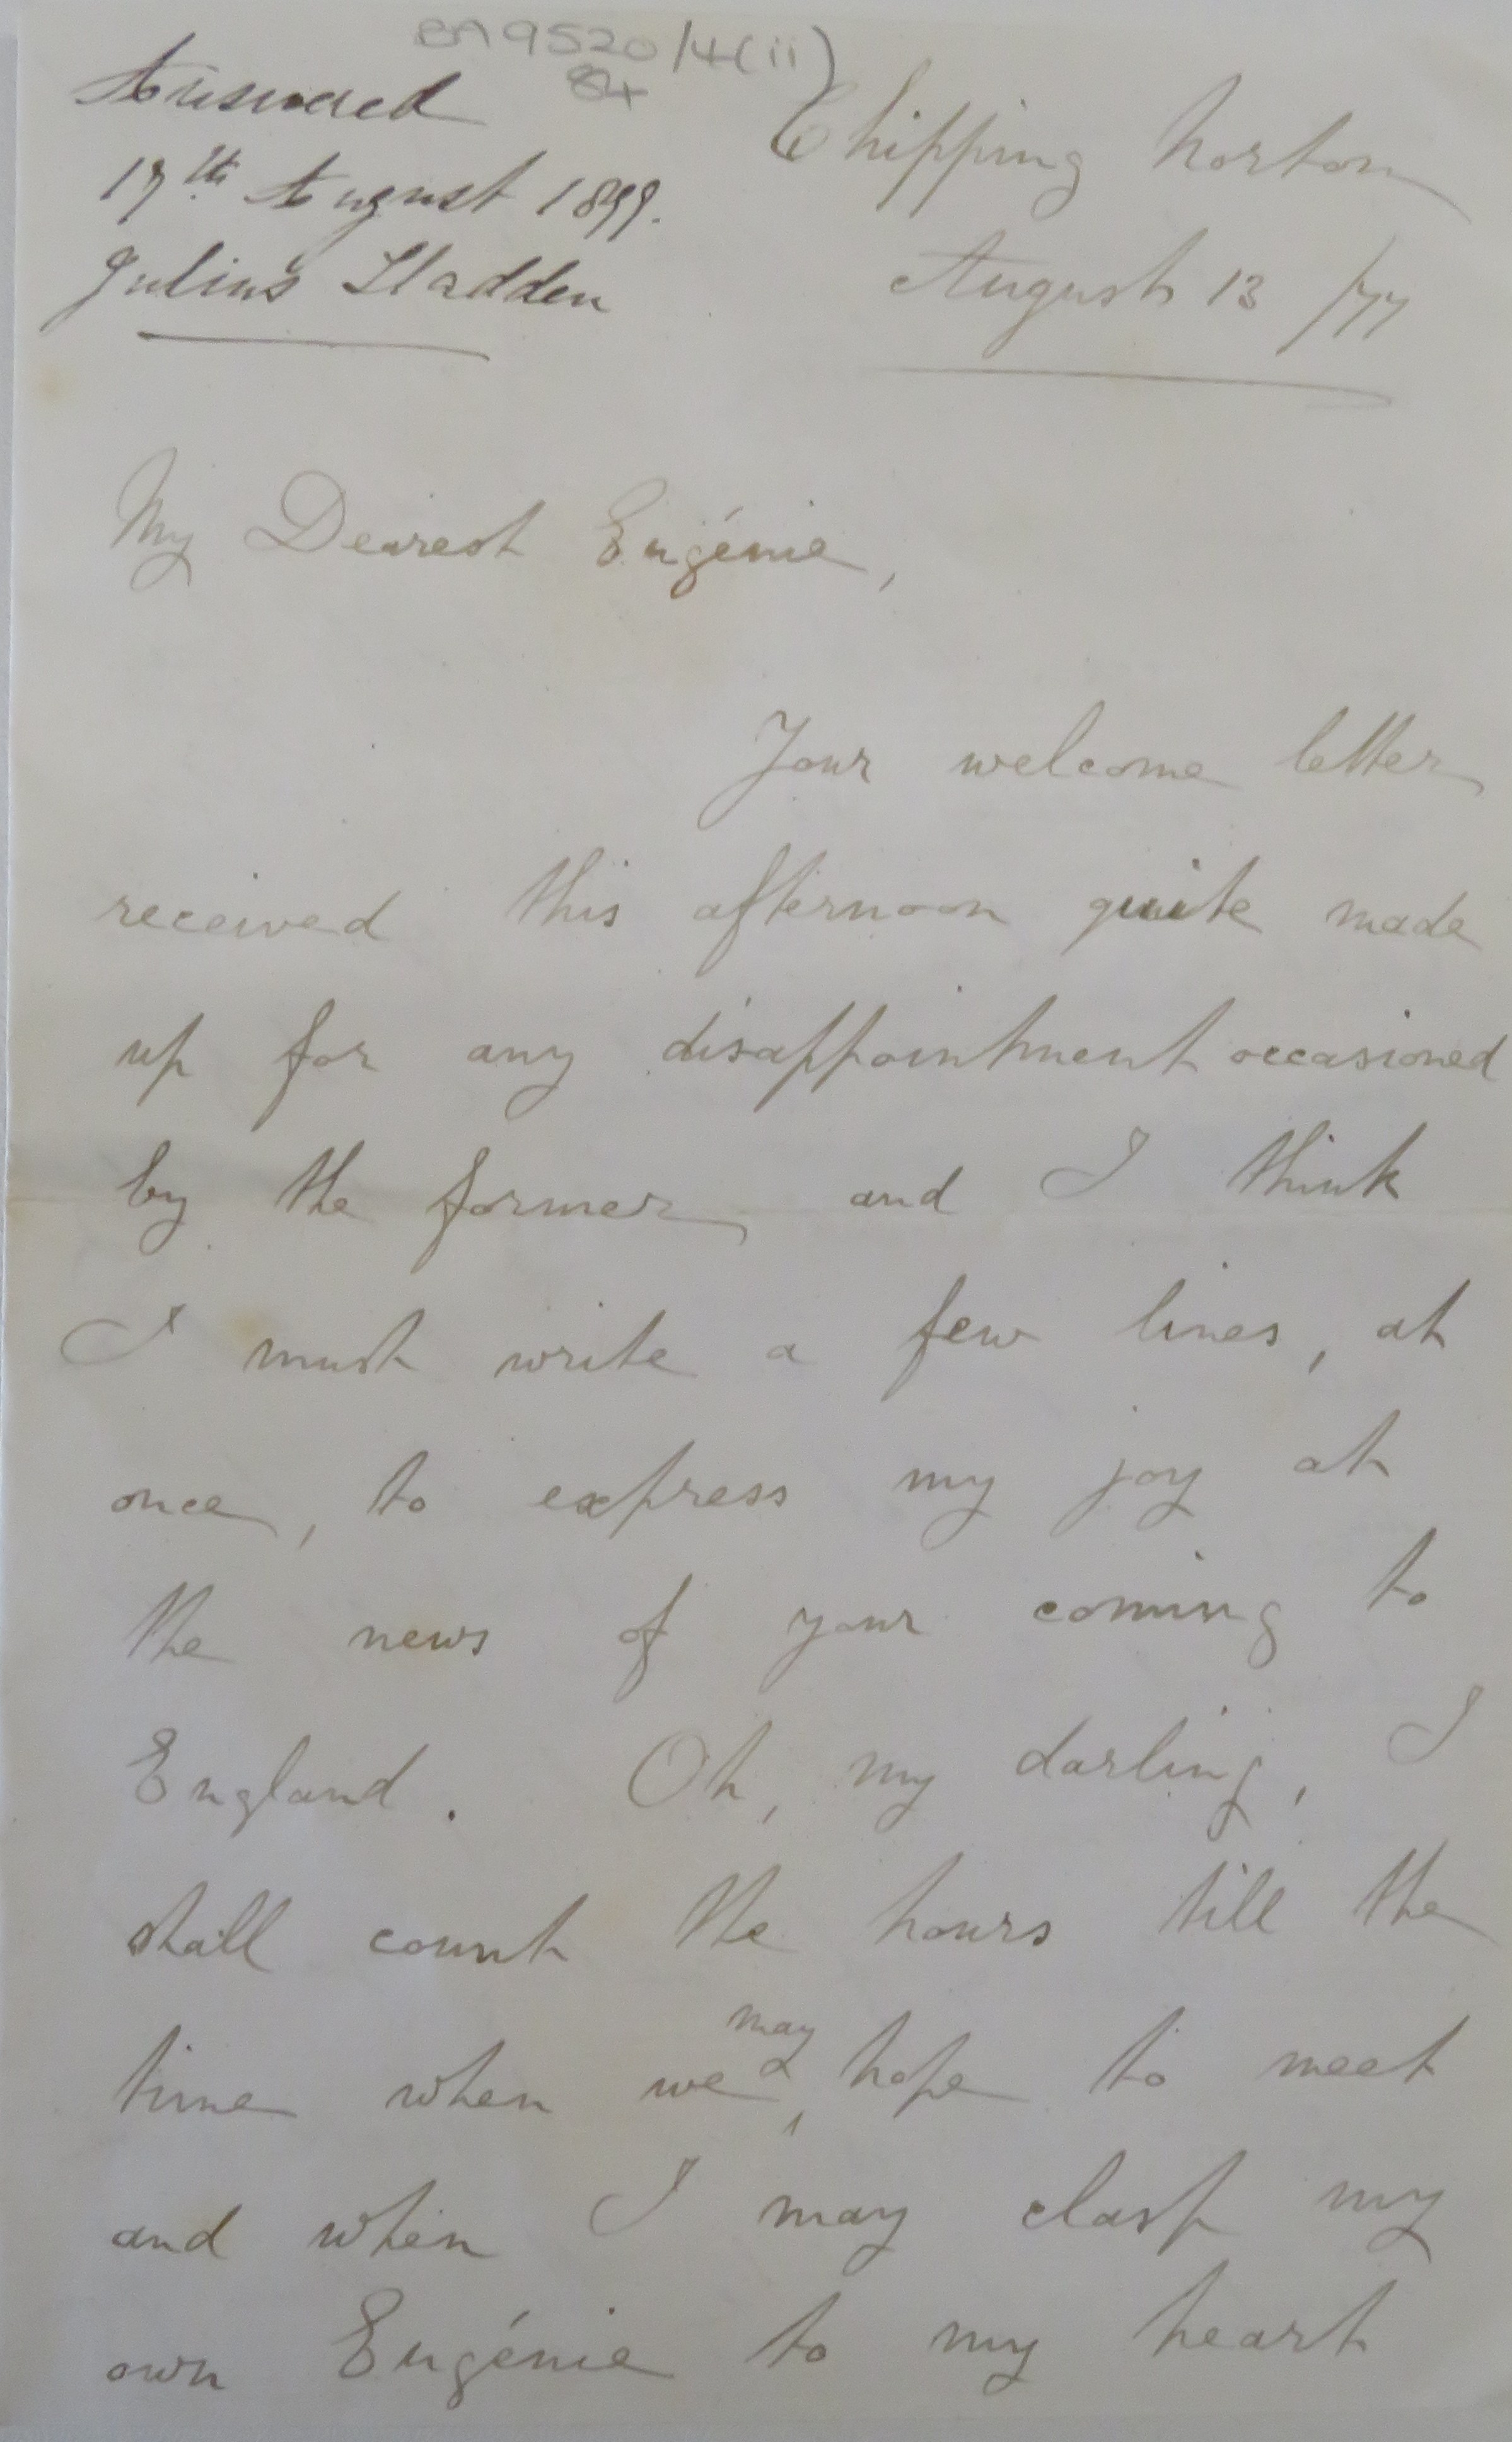 BA9520/4(ii)
84
Answered
17th August 1877.
Julius Sladden
Chipping Norton
August 13 /77
My Dearest Eugénie,
Your welcome letter
received this afternoon quite made
up for any disappointment occasioned
by the former and I think
I must write a few lines, at
once, to express my joy at
the news of your coming to
England. Oh, my darling, I
shall count the hours till the
may
time when we ‸ hope to meet
and when I may clasp my
own Eugénie to my heart